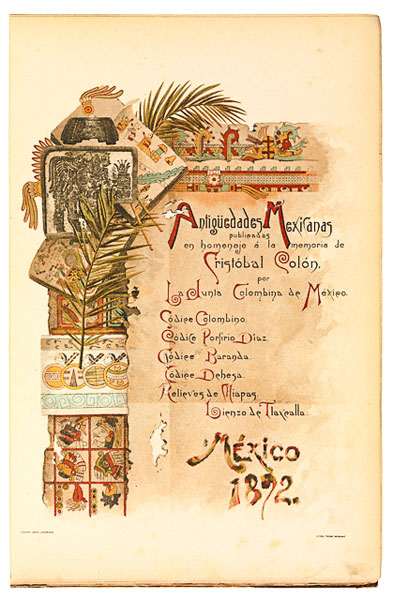 Antigüedades Mexicanas
publicadas
en homenaje á la memoria de
Cristóbal Colón,
por
La Junta Colombina de México.
Códice Colombino.
Códice Porfirio Díaz.
Códice Baranda.
Códice Dehesa.
Relieves de Chiapas.
Lienzo de Tlaxcalla.
México
1892.